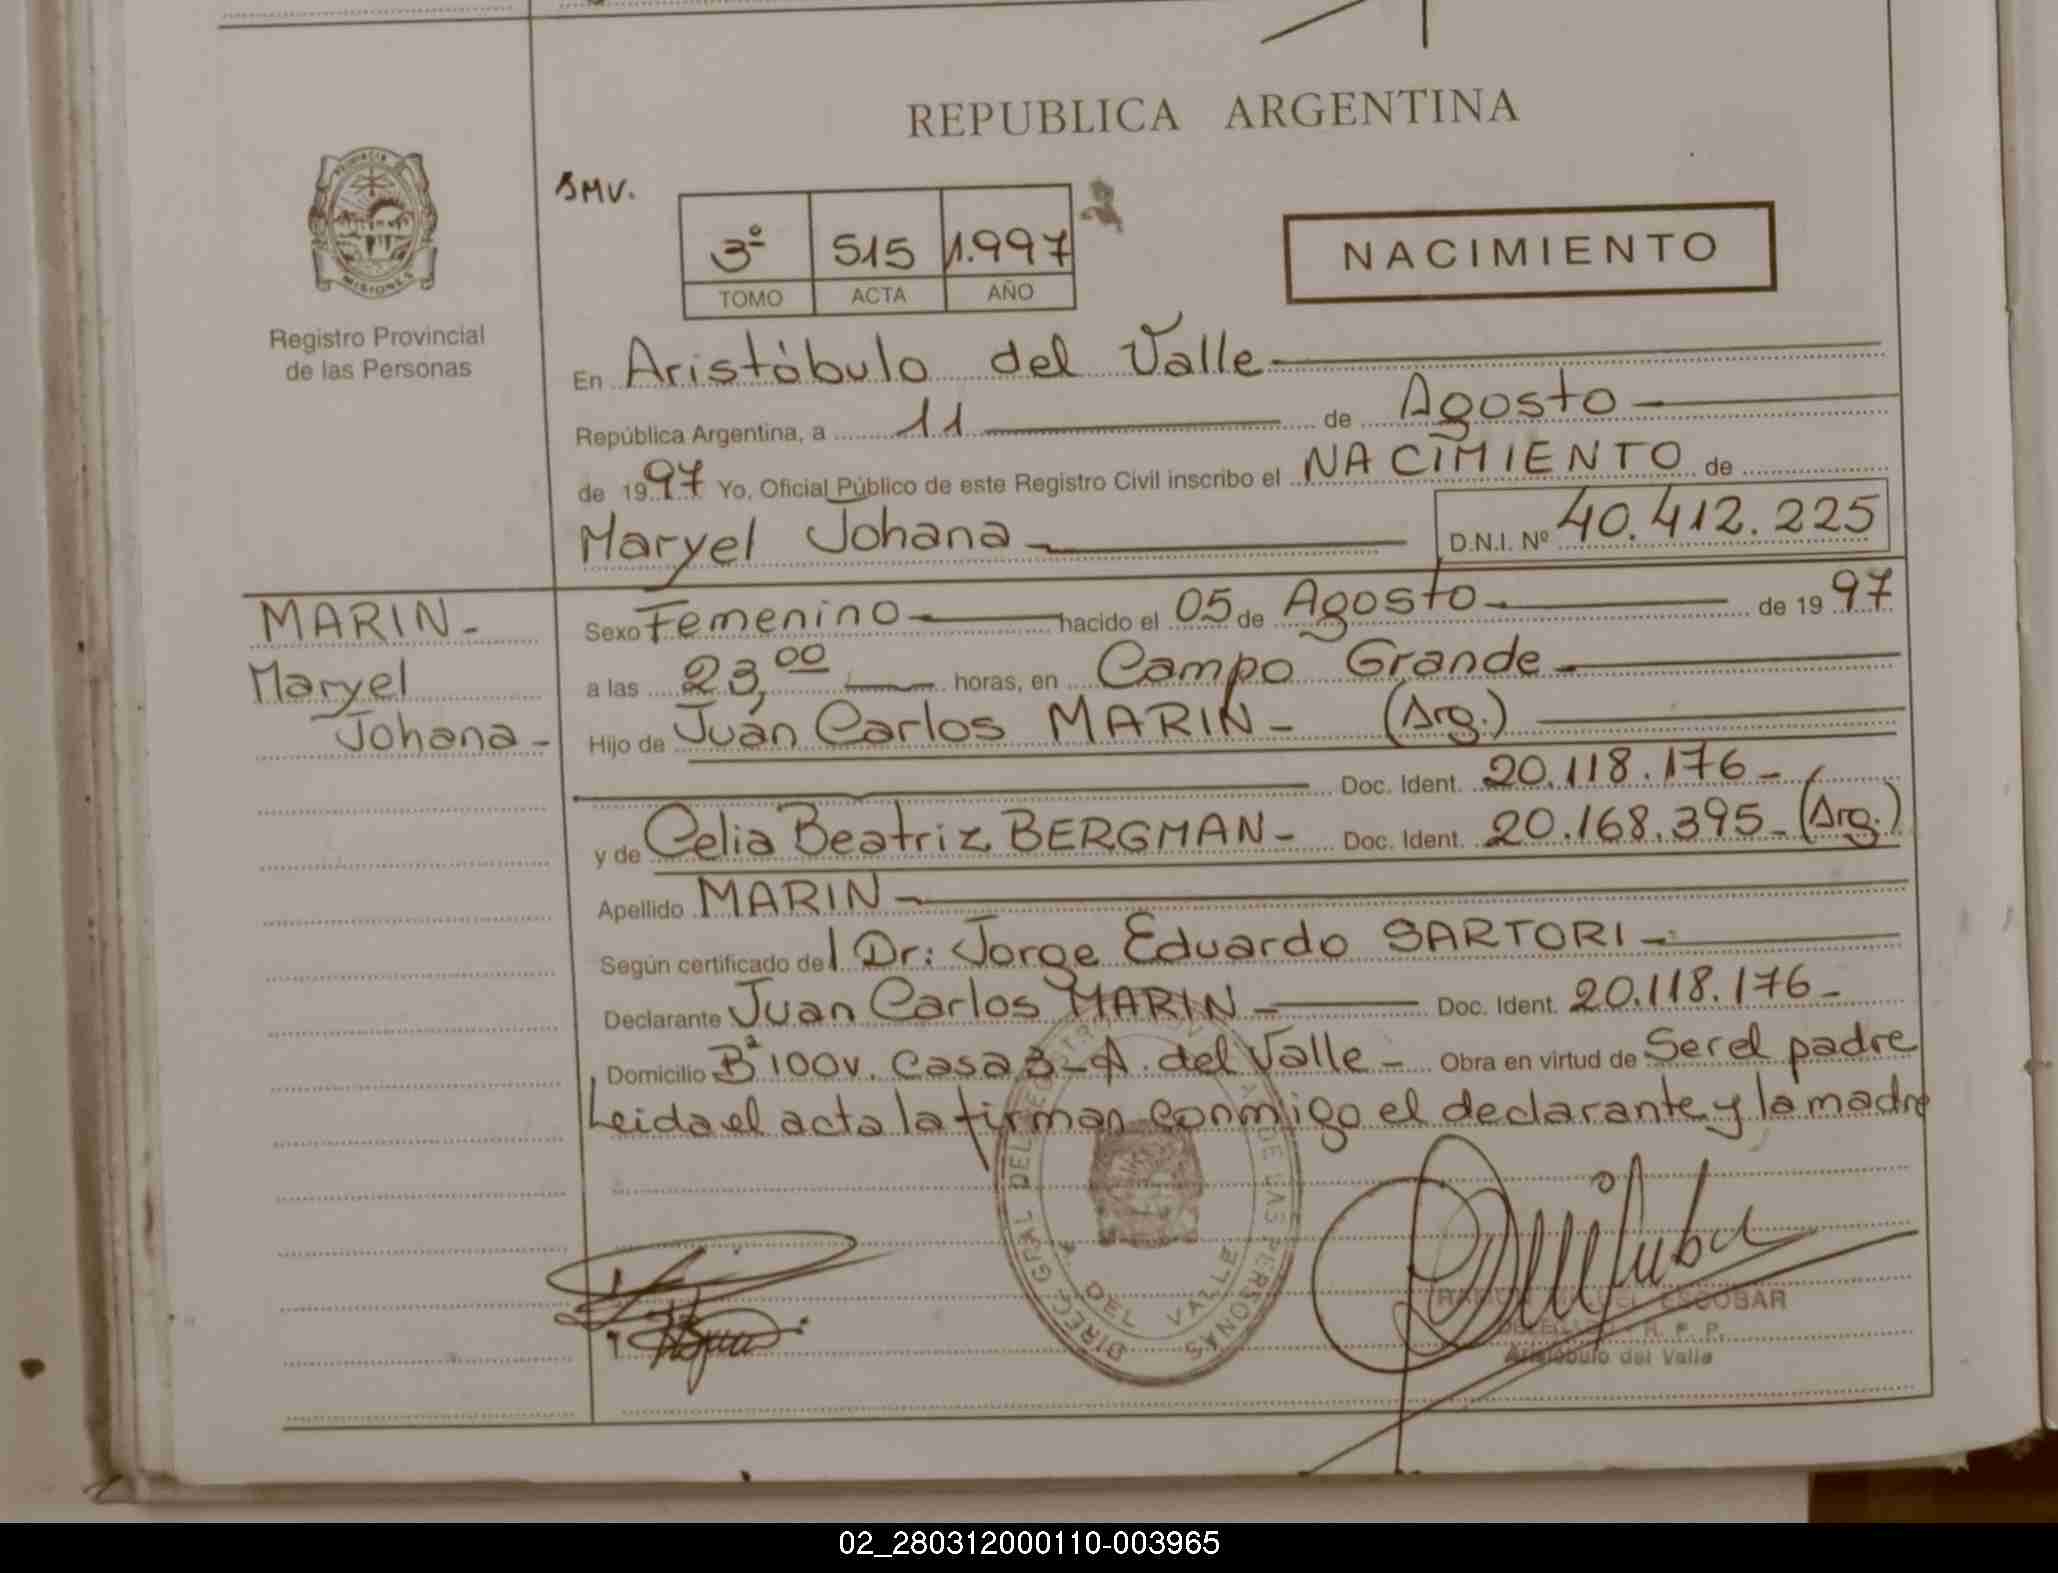 REPUBLICA ARGENTINA
PROVINCIA
MISIONES
Registro Provincial
de las Personas
SMV.
3º 515 1.997
TOMO ACTA AÑO
NACIMIENTO
En Aristóbulo del Valle
República Argentina, a 11 de Agosto
de 1997 Yo, Oficial Público de este Registro Civil inscribo el NACIMIENTO de
Maryel Johana D.N.I. Nº 40.412.225
MARIN-
Maryel
Johana-
Sexo Femenino nacido el 05 de Agosto de 1997
a las 23,00 horas, en Campo Grande
Hijo de Juan Carlos MARIN- (Arg.)
Doc. Ident. 20.118.176-
y de Celia Beatriz BERGMAN- Doc. Ident. 20.168.395-(Arg.)
Apellido MARIN
Según certificado del Dr: Jorge Eduardo SARTORI-
Declarante Juan Carlos MARIN- Doc. Ident. 20.118.176-
Domicilio Bº 100v. Casa 3-A. del Valle- Obra en virtud de Ser el padre
Leida el acta la firman conmigo el declarante y la madre
DIREC. GRAL DEL DE LAS PERSONAS
A. DEL VALLE
ESCOBAR
R. P. P.
Aristóbulo del Valle
02_280312000110-003965